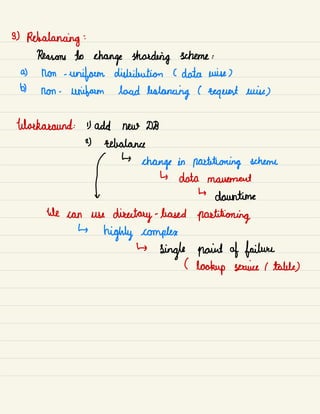 3) Rebalancing :
Reasons to change sharding scheme :
a) non-uniform distribution ( data wise)
b) non-uniform load balancing ( request wise)
Workaround: 1) add new DB
2) rebalance
↳ change in partitioning scheme
↳ data movement
↳ downtime
We can use directory-based partitioning
↳ highly complex
↳ single point of failure
( lookup service / table)